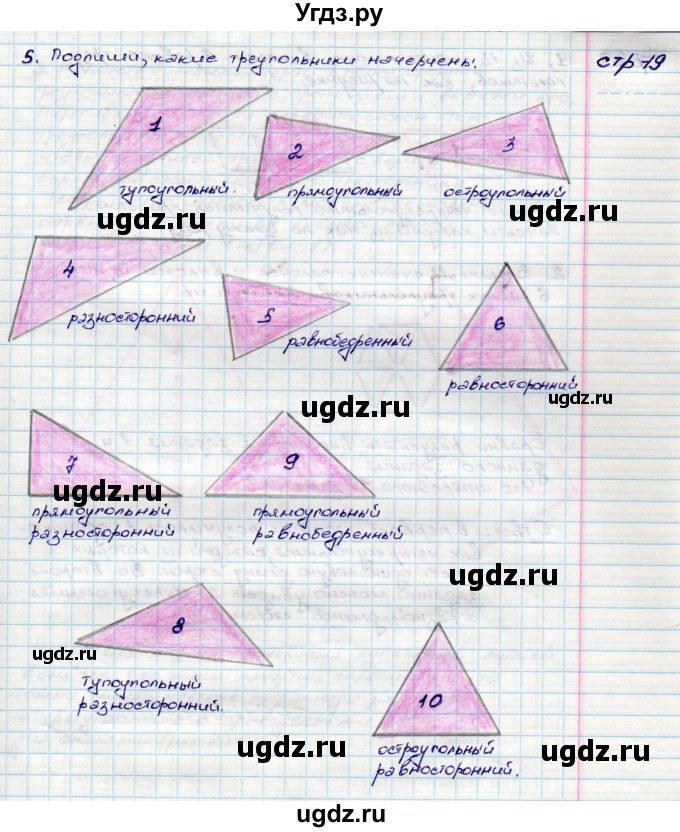 Угдз.ру
5. Подпиши, какие треугольники начерчены.
стр 19
1
2
3
тупоугольный.
прямоугольный
остроугольный
ugdz.ru
ugdz.ru
4
разносторонний
5
равнобедренный
6
равносторонний
ugdz.ru
ugdz.ru
7
9
ugdz.ru
прямоугольный
разносторонний
прямоугольный
равнобедренный
ugdz.ru
8
ugdz.ru
тупоугольный
разносторонний.
10
остроугольный
равносторонний.
ugdz.ru
ugdz.ru
ugdz.ru